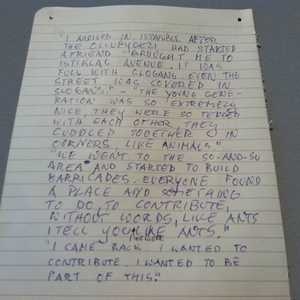 "I ARRIVED IN ISTANBUL AFTER
THE ÇAPULCU(GEZI) HAD STARTED
A FRIEND BROUGHT ME TO
ISTIKLAL AVENUE. IT WAS
FULL WITH SLOGANS. EVEN THE
STREET WAS COVERED IN
SLOGANS." - "THE YOUNG GENE-
RATION WAS SO EXTREMELY
NICE, THEY WERE SO TENDER
WITH EACH OTHER. THEY
CUDDLED TOGETHER IN
CORNERS, LIKE ANIMALS"
"WE WENT TO THE SO-AND-SO
AREA AND STARTED TO BUILD
BARRICADES. EVERYONE FOUND
A PLACE AND SOMETHING
TO DO, TO CONTRIBUTE,
WITHOUT WORDS, LIKE ANTS
I TELL YOU, LIKE ANTS."
"I CAME BACK I WANTED TO
CONTRIBUTE. I WANTED TO BE
PART OF THIS."